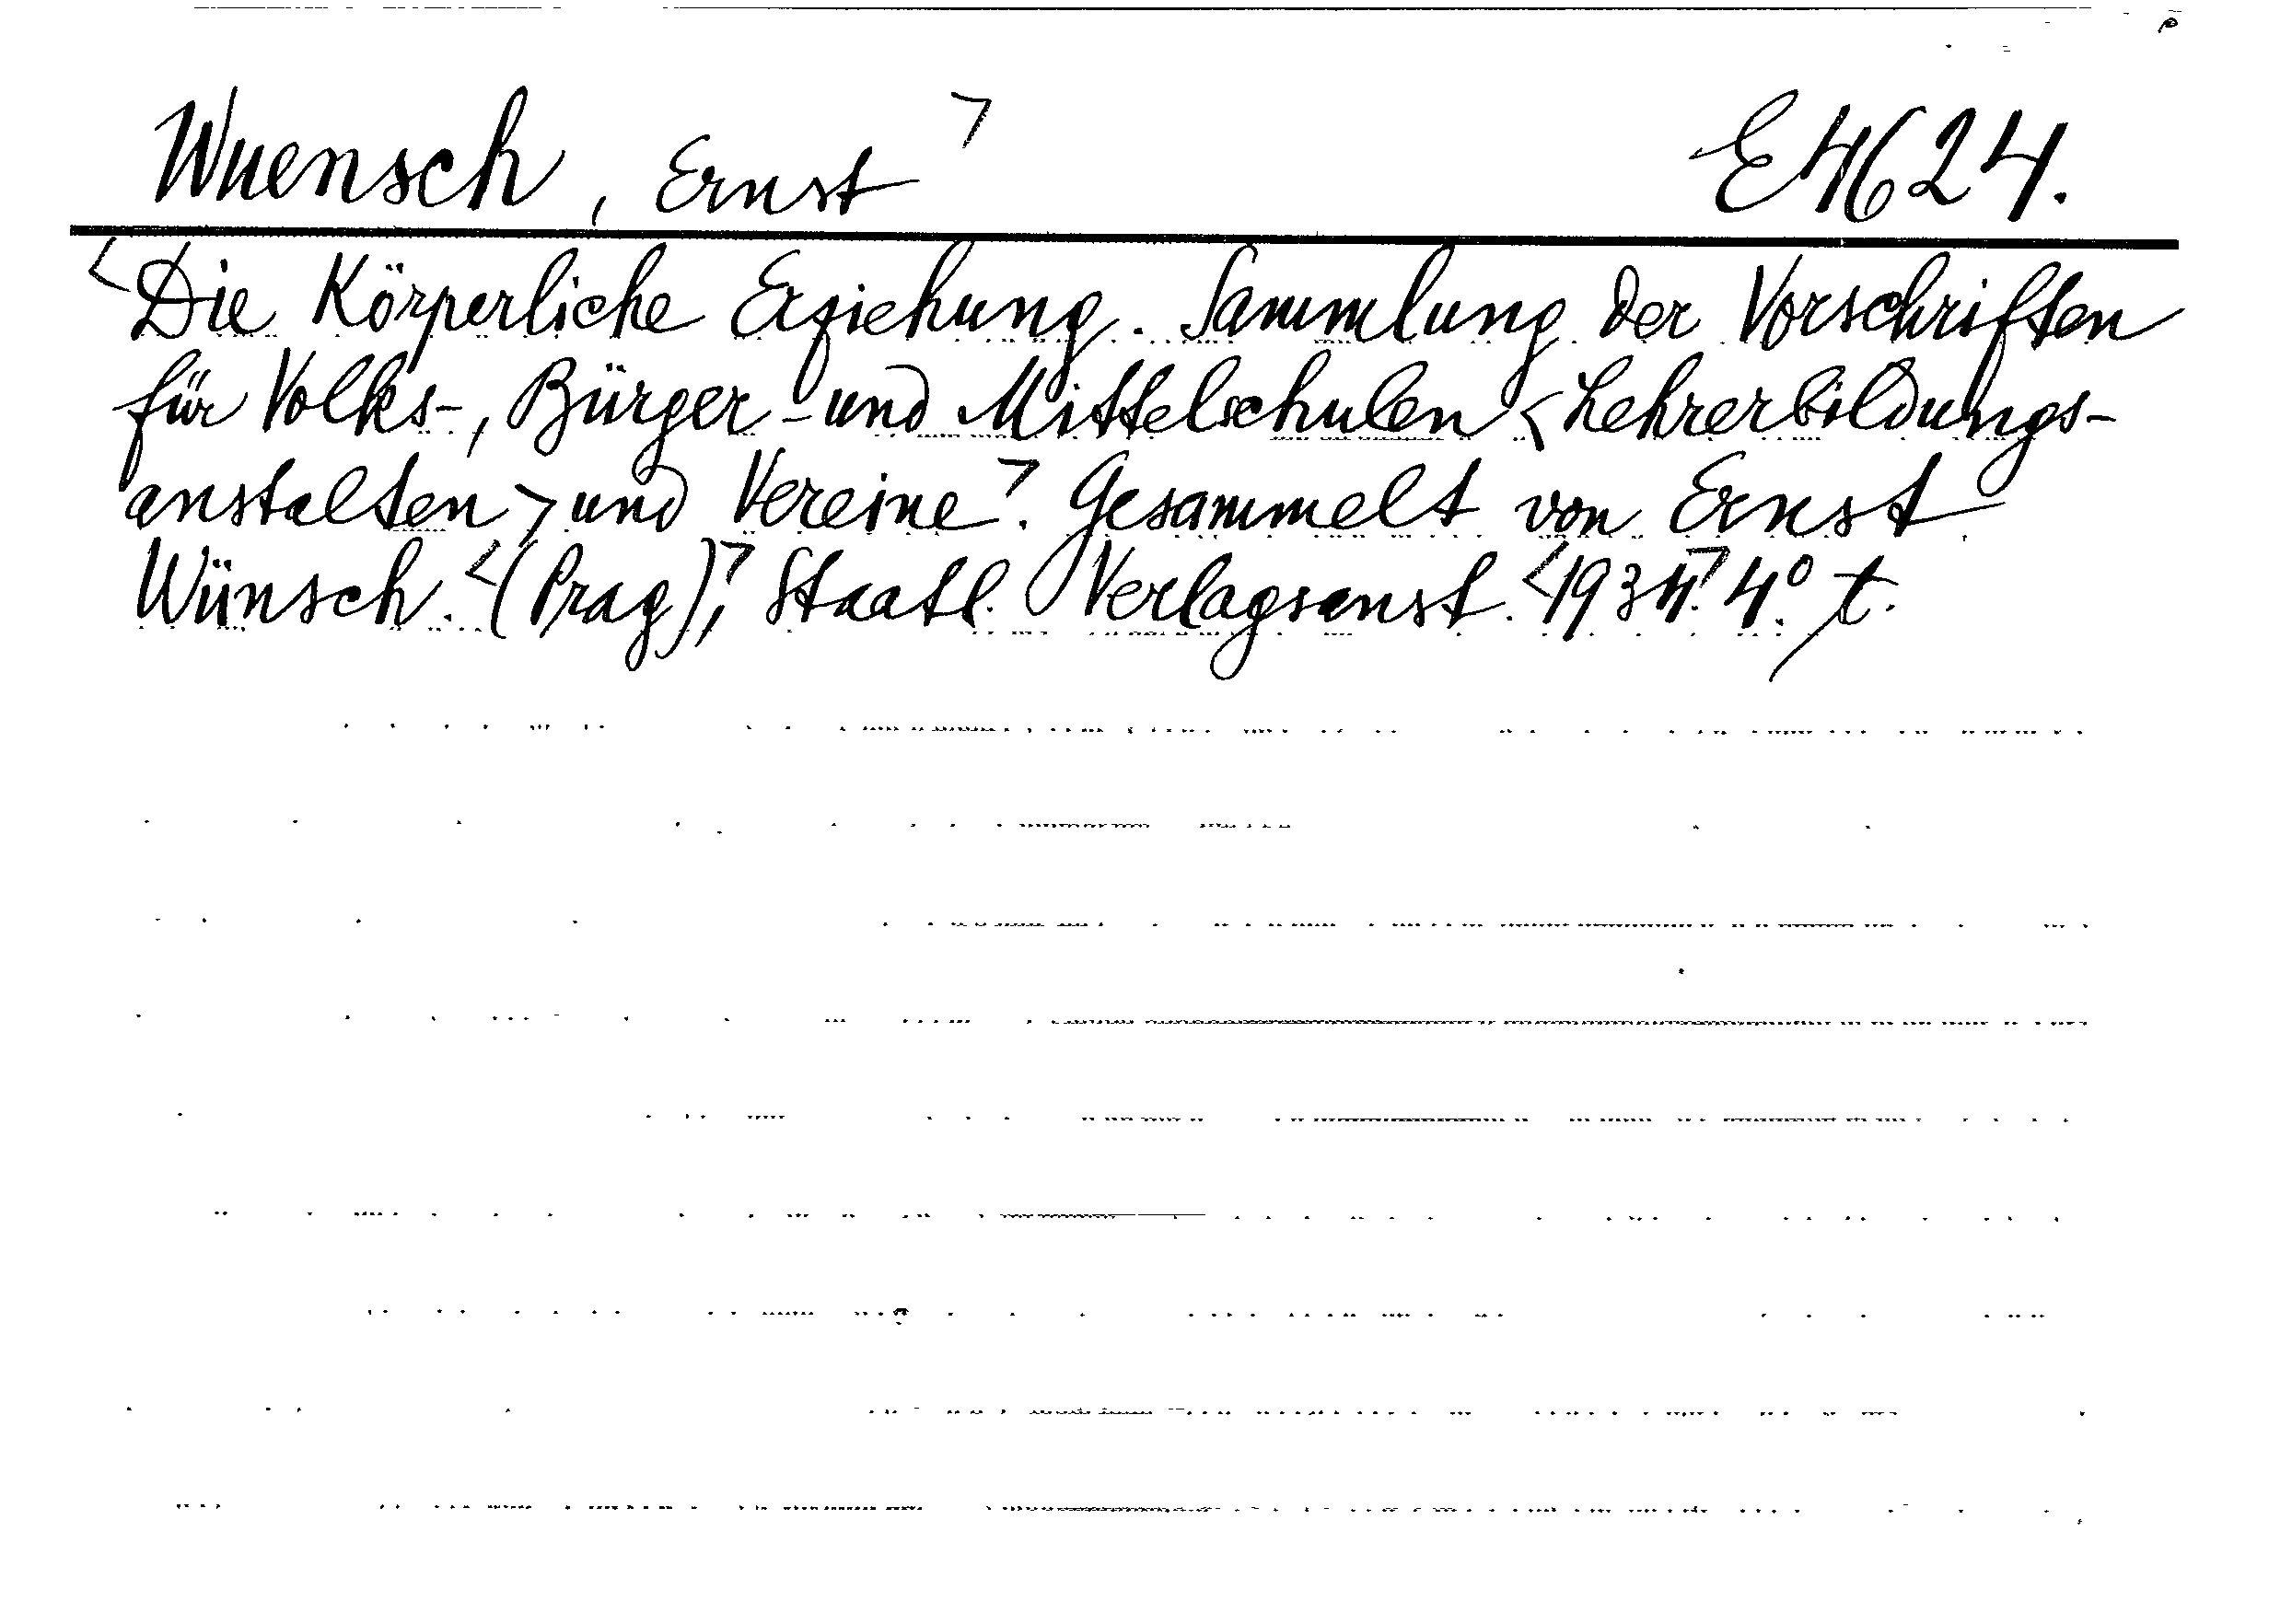 Wuensch, Ernst > E 4624.
<Die Körperliche Erziehung. Sammlung der Vorschriften
für Volks-, Bürger- und Mittelschulen <Lehrerbildungs-
anstalten> und Vereine>. Gesammelt von Ernst
Wünsch. <(Prag),> Staatl. Verlagsanst. <1934.> 4°. t.